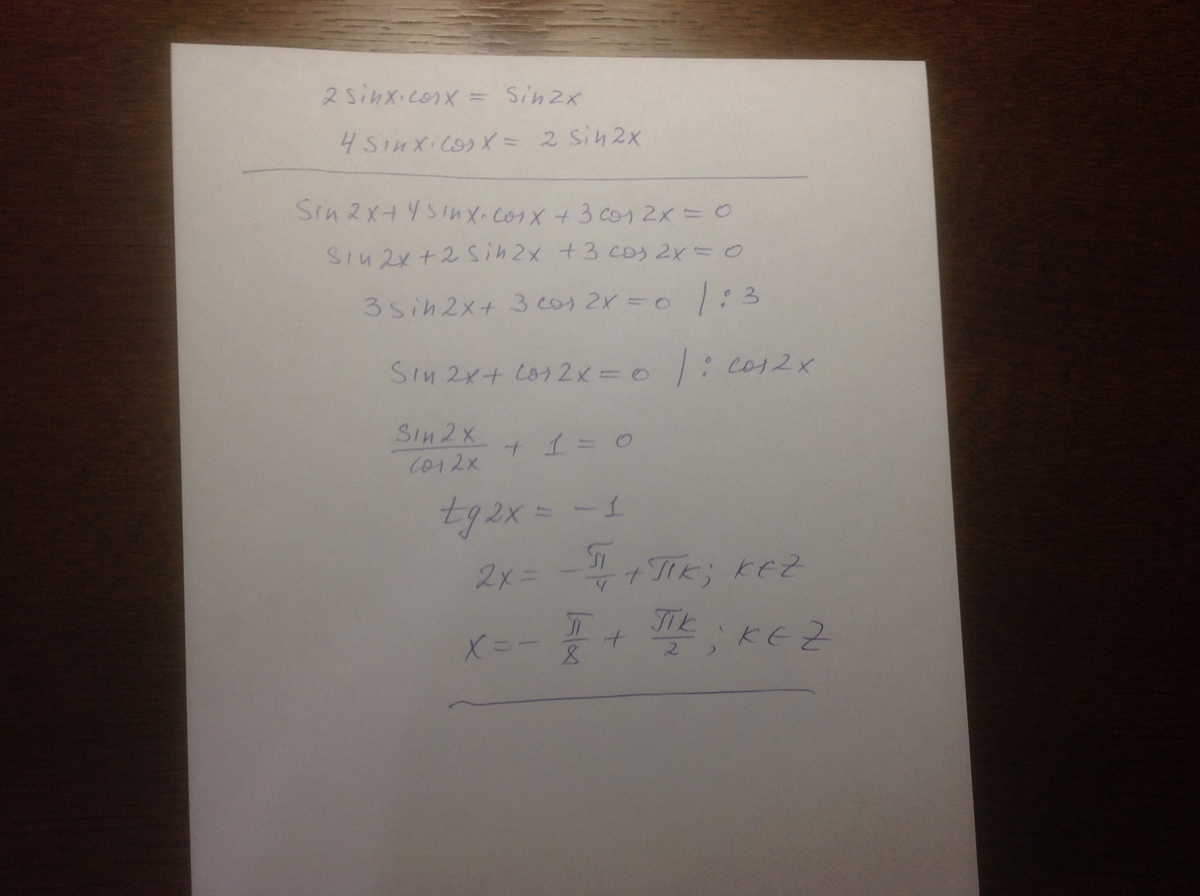 2 sinx·cosx = sin2x
4 sinx·cosx = 2 sin2x
sin2x + 4 sinx·cosx + 3 cos2x = 0
sin2x + 2 sin2x + 3 cos2x = 0
3 sin2x + 3 cos2x = 0 | : 3
sin2x + cos2x = 0 | : cos2x
sin2x/cos2x + 1 = 0
tg2x = -1
2x = -π/4 + πk; k∈Z
x = -π/8 + πk/2; k∈Z